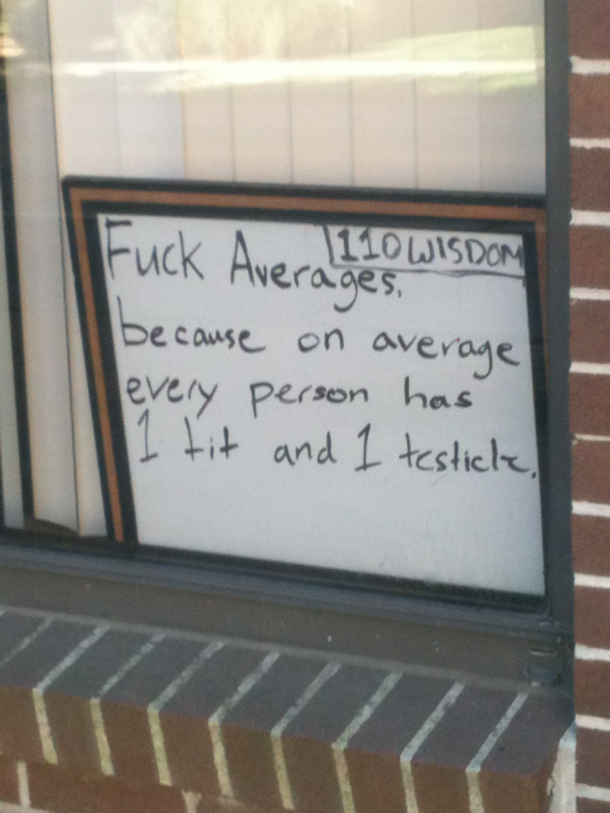 110 WISDOM
Fuck Averages,
because on average
every person has
1 tit and 1 testicle.